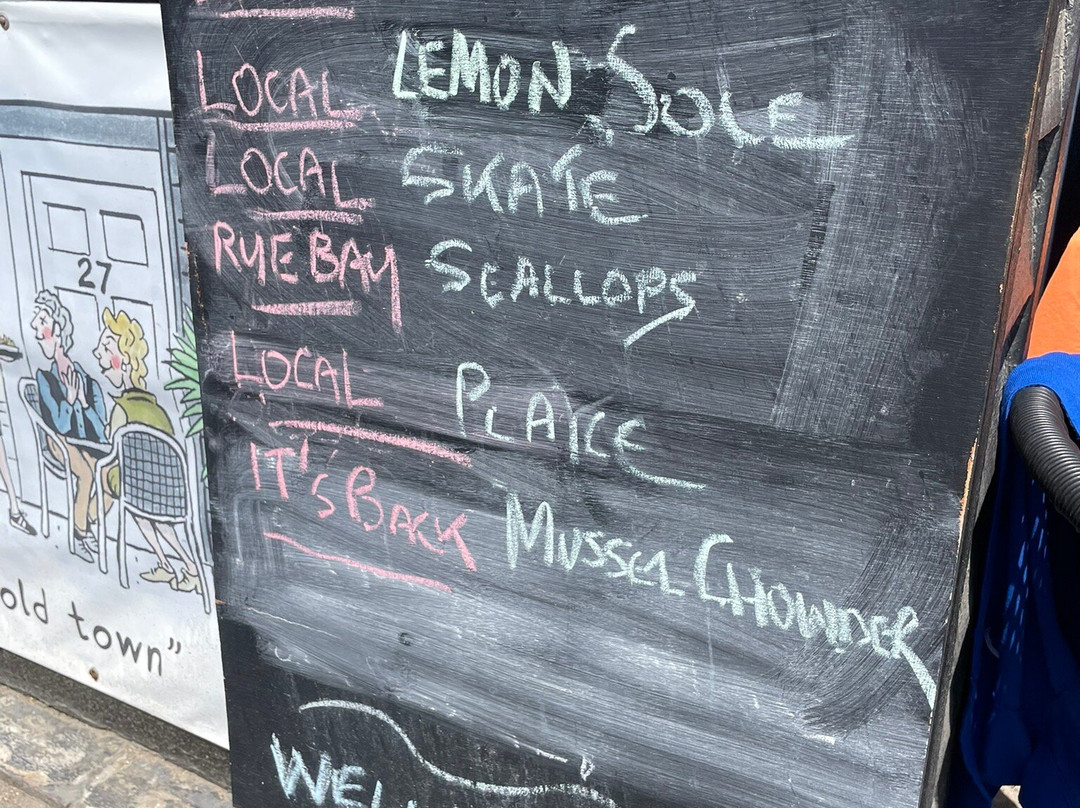 LOCAL LEMON SOLE
LOCAL SKATE
RYE BAY SCALLOPS
LOCAL PLAICE
IT'S BACK MUSSEL CHOWDER
WEL
27
old town"